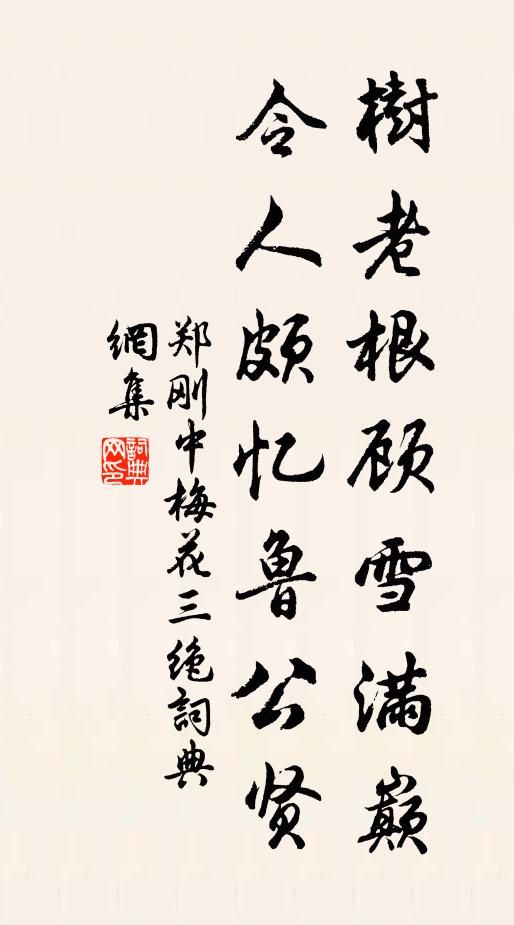 樹老根顾雪满巅
令人颇忆鲁公贤
郑刚中梅花三绝詞典
網集
詞典網印